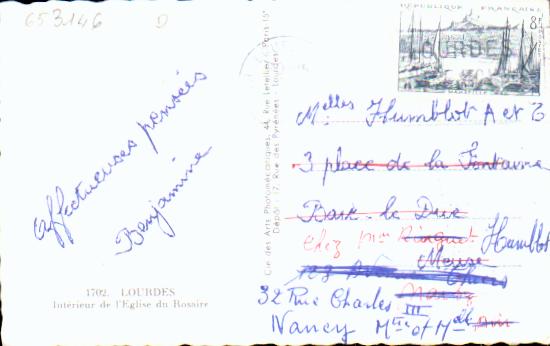 653146 D
REPUBLIQUE FRANÇAISE
8F
LOURDES
MARSEILLE
affectueuses pensées
Benjamine
1702. LOURDES
Intérieur de l'Eglise du Rosaire
Cie des Arts Photomécaniques, 44, Rue Letellier - Paris-15e
Dépôt : 17, Rue des Pyrénées - Lourdes
Melles Humblot A et B
3 place de la Fontaine
Bar-le-Duc
chez Mme Humblot
Meuse
32 Rue Charles III
Nancy